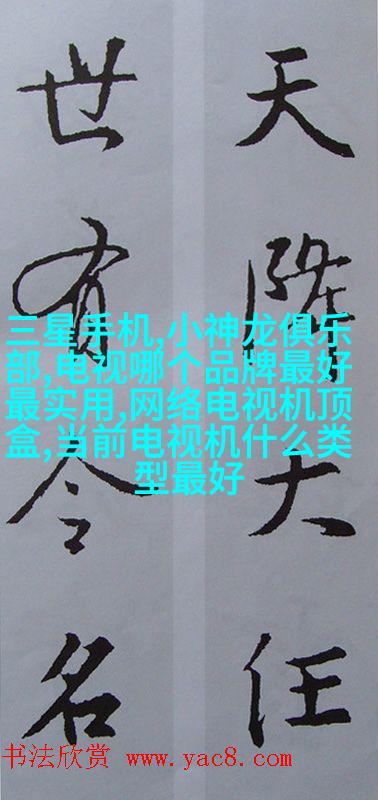 天降大任
世有令名
三星手机,小神龙俱乐
部,电视哪个品牌最好
最实用,网络电视机顶
盒,当前电视机什么类
型最好
书法欣赏 www.yac8.com